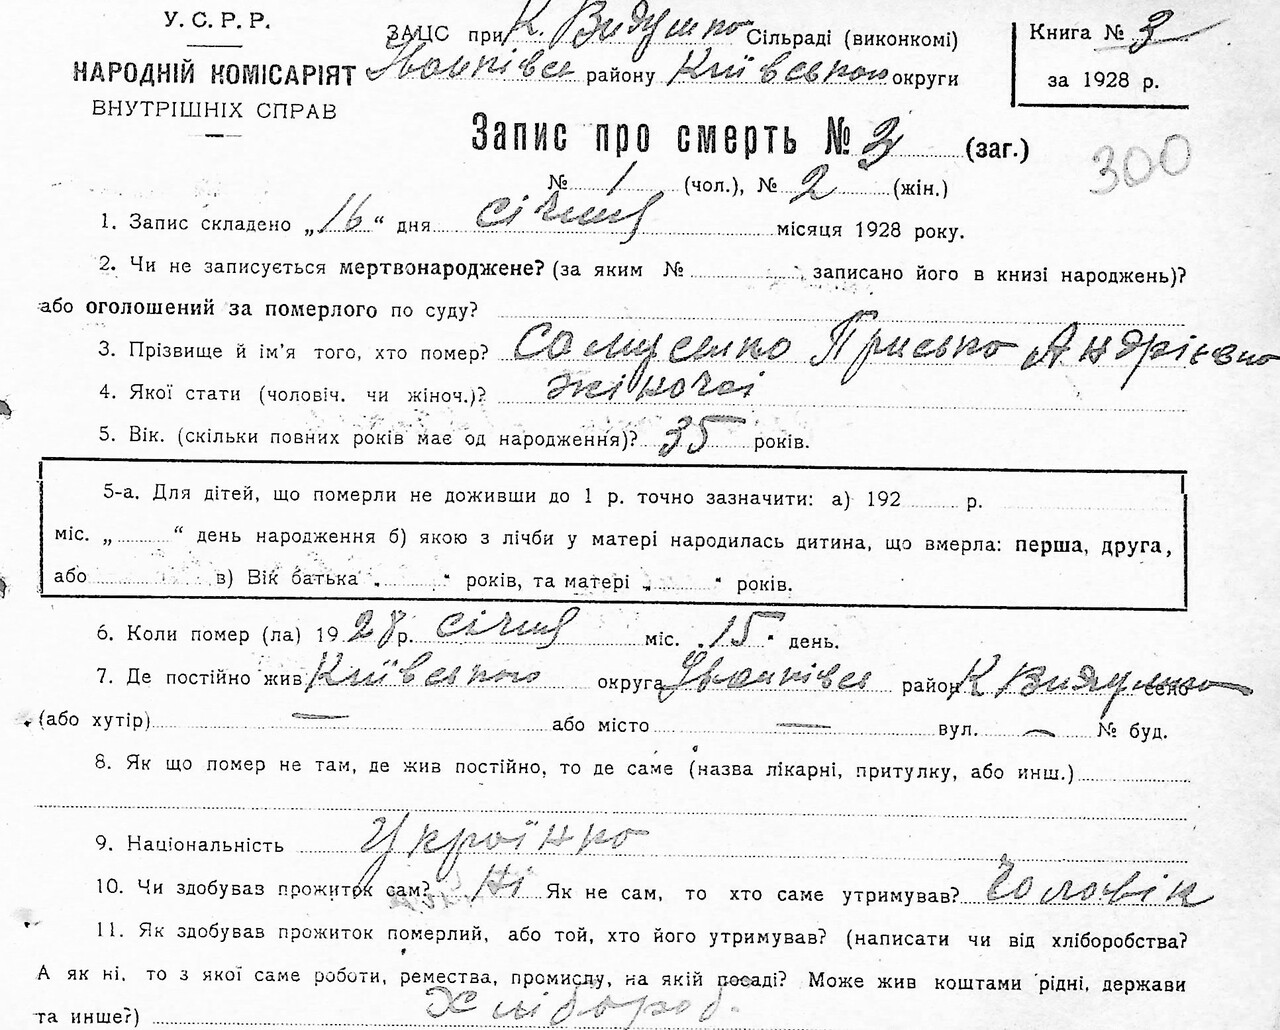 У. С. Р. Р.
НАРОДНІЙ КОМІСАРІЯТ
ВНУТРІШНІХ СПРАВ
ЗАЦС при К. Сільраді (виконкомі)
Іванківсь району Київською округи
Книга № 3
за 1928 р.
Запис про смерть № 3 (заг.)
300
№ 1 (чол.), № 2 (жін.)
1. Запис складено „16“ дня січня місяця 1928 року.
2. Чи не записується мертвонароджене? (за яким № записано його в книзі народжень)?
або оголошений за померлого по суду?
3. Прізвище й ім'я того, хто помер? Самусенко Приська Андрієвна
4. Якої стати (чоловіч. чи жіноч.)? жіночої
5. Вік. (скільки повних років має од народження)? 35 років.
5-а. Для дітей, що померли не доживши до 1 р. точно зазначити: а) 192 р.
міс. „ “ день народження б) якою з лічби у матері народилась дитина, що вмерла: перша, друга,
або в) Вік батька „ “ років, та матері „ “ років.
6. Коли помер (ла) 1928 р. січня міс. „15“ день.
7. Де постійно жив Київською округа Іванківсь район К село
(або хутір) — або місто — вул. — № буд.
8. Як що помер не там, де жив постійно, то де саме (назва лікарні, притулку, або инш.)
9. Національність Українка
10. Чи здобував прожиток сам? Ні Як не сам, то хто саме утримував? Чоловік
11. Як здобував прожиток померлий, або той, хто його утримував? (написати чи від хліборобства?
А як ні, то з якої саме роботи, ремества, промислу, на якій посаді? Може жив коштами рідні, держави
та инше?) Хлібороб.